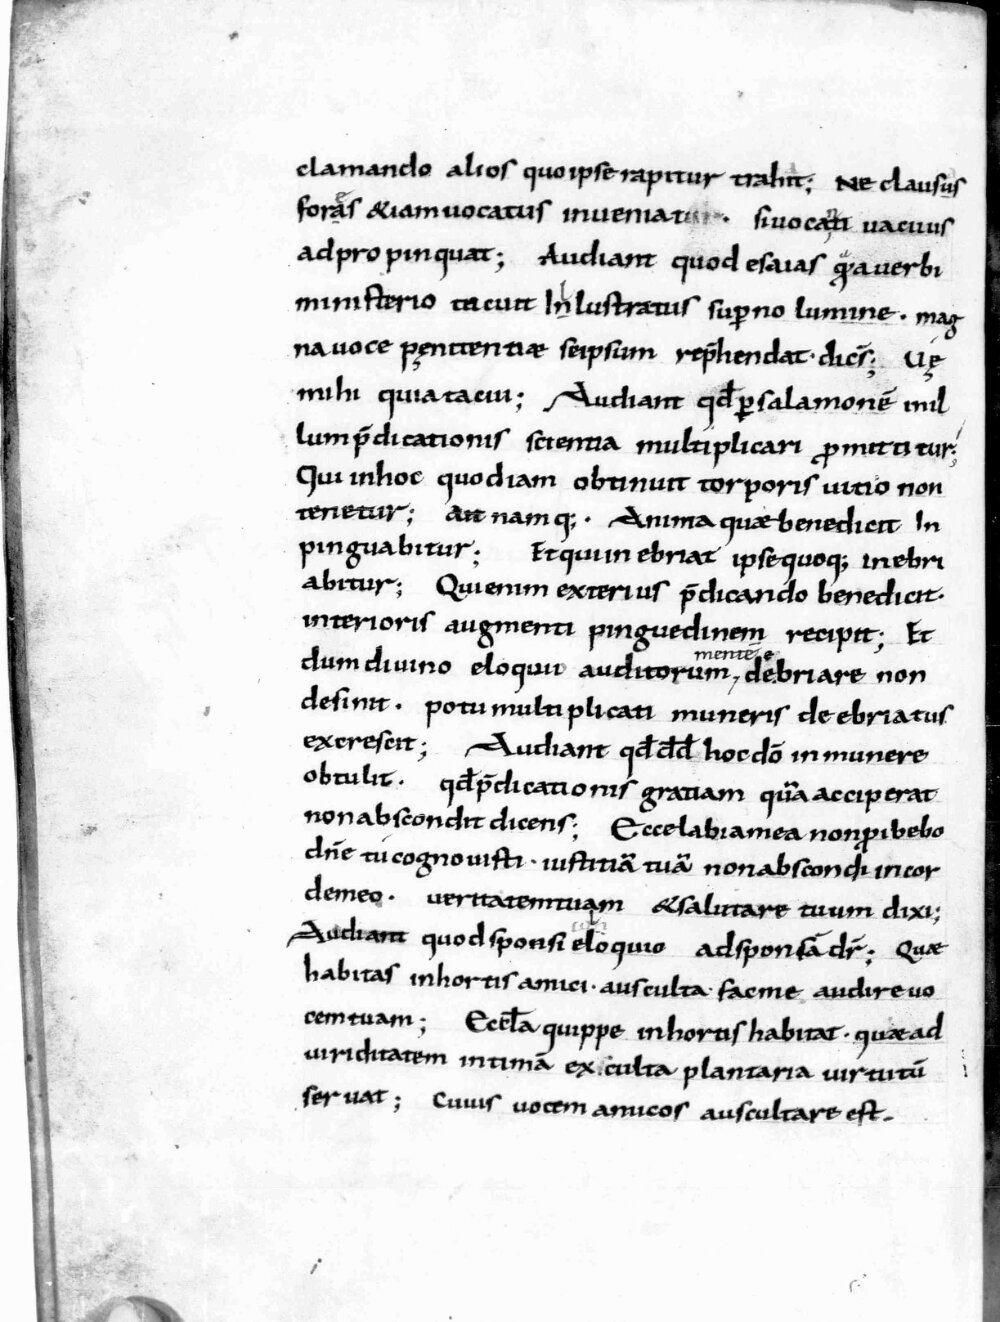 clamando alios quo ipse rapitur trahit; Ne clausus
foras &iam uocatus inueniatur. si uocati uacuus
adpropinquat; Audiant quod esaias q̄a uerbi
ministerio tacuit Inlustratus suꝑno lumine. mag
na uoce pęnitentiae seipsum rep̄hendat. dic̄s; Uę
mihi quia tacui; Audiant qđ ꝑ salamonē inil
lum p̄dicationis scientia multiplicari ꝓmittitur;
Qui inhoc quod iam obtinuit torporis uitio non
tenetur; Ait namq;. Anima quae benedicit In
pinguabitur; Et qui inebriat ipse quoq; inebri
abitur; Qui enim exterius p̄dicando benedicit.
interioris augmenti pinguedinem recipit; Et
mentē e
dum diuino eloquii auditorum, debriare non
desinit. potu multiplicati muneris deebriatus
excrescit; Audiant qđ đđ hoc dō in munere
obtulit. qđ p̄dicationis gratiam quā acciperat
non abscondit dicens; Ecce labia mea non ꝓibebo
dn̄e tu cognouisti. iustitiā tuā non abscondi in cor
de meo. ueritatem tuam &salutare tuum dixi;
Audiant quod sponsi eloquio ad sponsā dr̄; Quae
habitas in hortis amici. ausculta. fac me audire uo
cem tuam; Eccła quippe in hortis habitat. quae ad
uiriditatem intimā ex culta plantaria uirtutū
seruat; Cuius uocem amicos auscultare est.